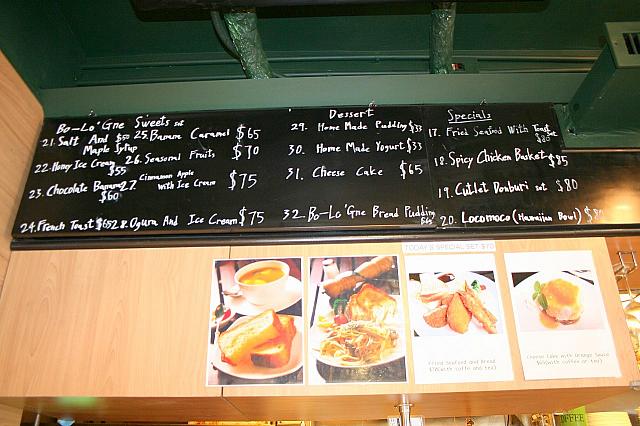 Bo-Lo'Gne Sweets set
21. Salt And $50
Maple Syrup
22. Honey Ice Cream
$55
23. Chocolate Banana
$60
24. French Toast $65
25. Banana Caramel $65
26. Seasonal Fruits $70
27. Cinnamon Apple
With Ice Cream $75
28. Ogura And Ice Cream $75
Dessert
29. Home Made Pudding $33
30. Home Made Yogurt $33
31. Cheese Cake $65
32. Bo-Lo'Gne Bread Pudding
Specials
17. Fried Seafood With Toast
$80
18. Spicy Chicken Basket $85
19. Cutlet Donburi set $80
20. Locomoco (Hawaiian Bowl)
TODAY'S SPECIAL SET
Fried Seafood and Bread
Cheese Cake with Orange Sauce